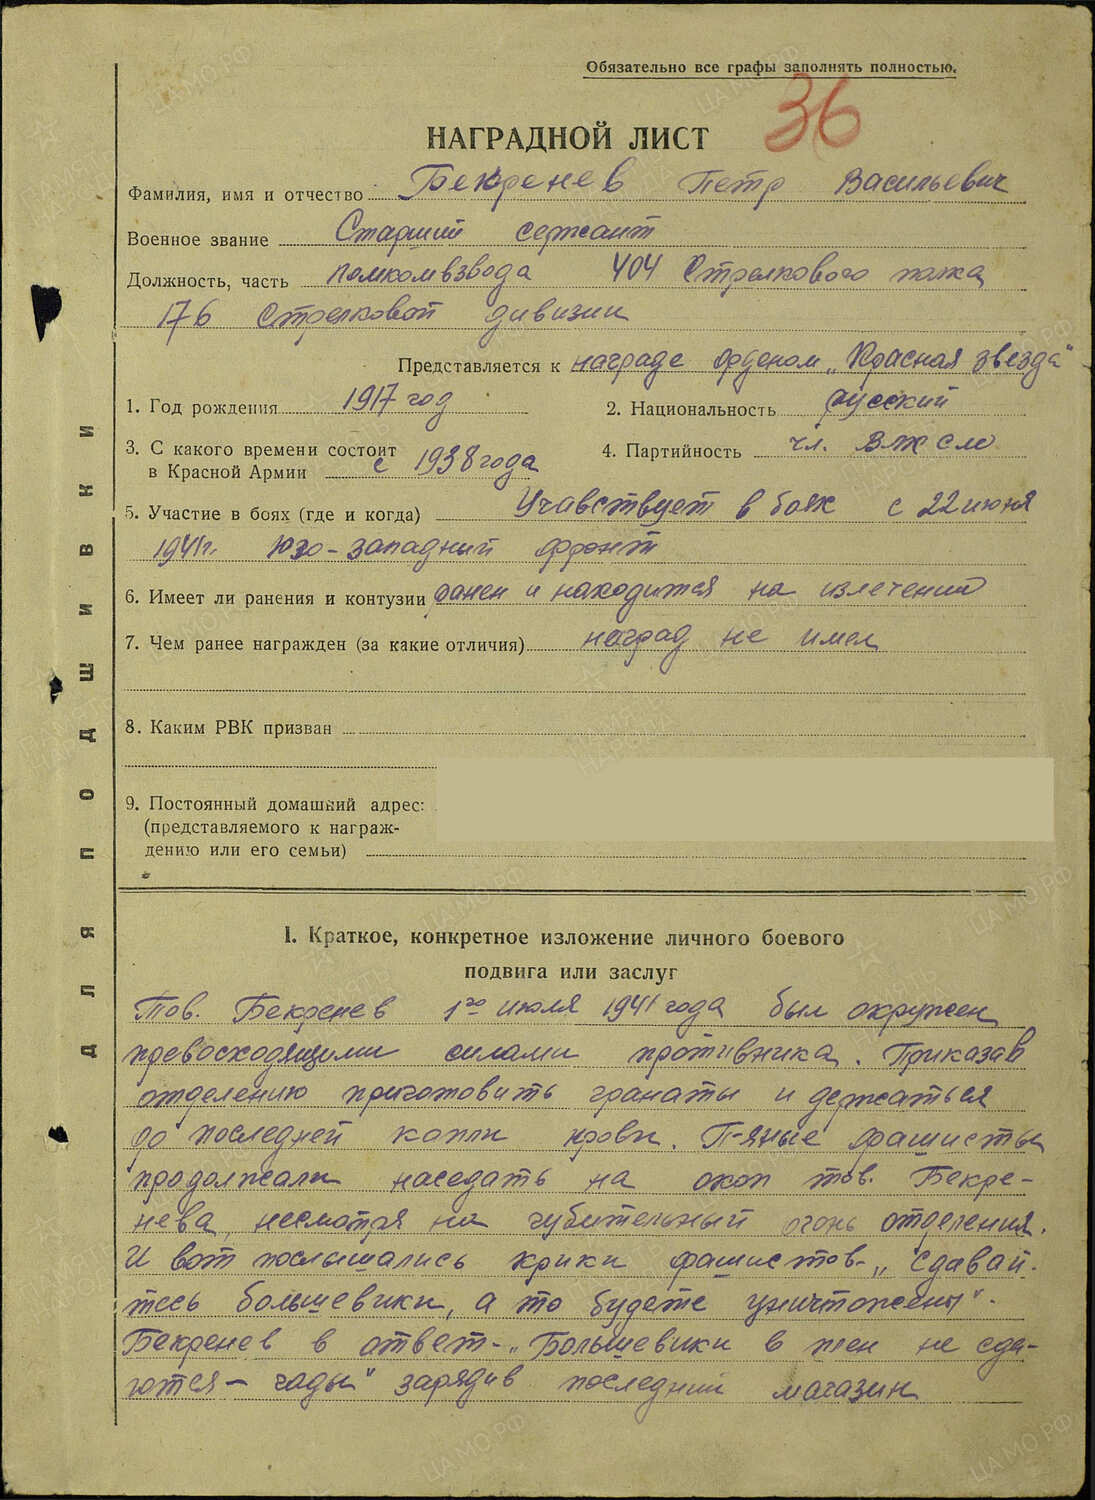 Обязательно все графы заполнять полностью.
36
НАГРАДНОЙ ЛИСТ
Фамилия, имя и отчество Бекренев Петр Васильевич
Военное звание Старший сержант
Должность, часть помкомвзвода 404 Стрелкового полка
176 Стрелковой дивизии
Представляется к награде орденом „Красная звезда"
1. Год рождения 1917 год 2. Национальность русский
3. С какого времени состоит
в Красной Армии с 1938 года 4. Партийность чл. ВЛКСМ
5. Участие в боях (где и когда) Учавствует в боях с 22 июня
1941 г. Юзо-западный фронт
6. Имеет ли ранения и контузии ранен и находится на излечении
7. Чем ранее награжден (за какие отличия) наград не имел
8. Каким РВК призван
9. Постоянный домашний адрес:
(представляемого к награж-
дению или его семьи)
ДЛЯ ПОДШИВКИ
I. Краткое, конкретное изложение личного боевого
подвига или заслуг
Тов. Бекренев 1го июля 1941 года был окружен
превосходящими силами противника. Приказав
отделению приготовить гранаты и держаться
до последней капли крови. П-яные фашисты
продолжали наседать на окоп тов. Бекре-
нева, несмотря на губительный огонь отделения.
И вот послышались крики фашистов-„Сдавай-
тесь большевики, а то будете уничтожены".
Бекренев в ответ-„Большевики в плен не сда-
ются – гады" зарядив последний магазин
ЦАМО РФ
ПАМЯТЬ НАРОДА